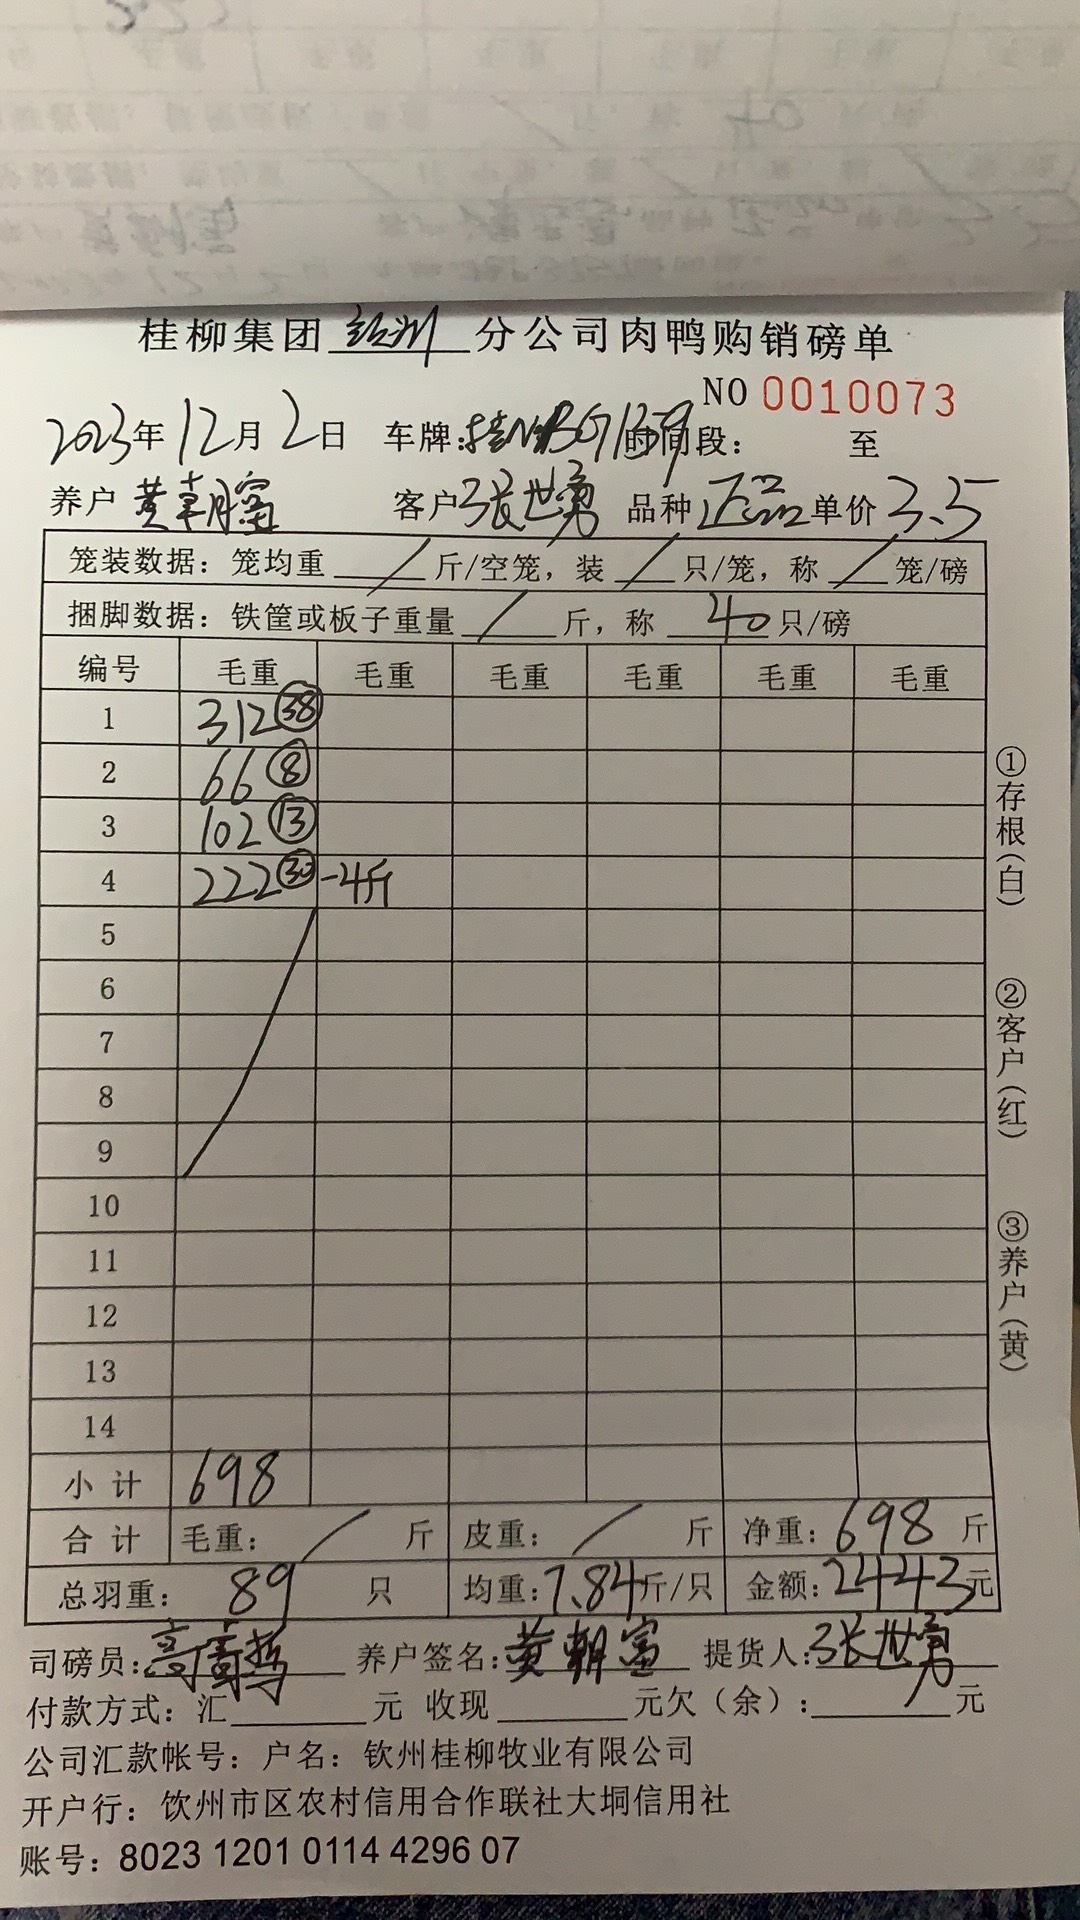 桂柳集团 钦州 分公司肉鸭购销磅单
NO 0010073
2023年 12月 2日 车牌: 时间段: 至
养户 黄朝富 客户 张世勇 品种 正品 单价 3.5
笼装数据: 笼均重 / 斤/空笼, 装 / 只/笼, 称 / 笼/磅
捆脚数据: 铁筐或板子重量 / 斤, 称 40 只/磅
编号 毛重 毛重 毛重 毛重 毛重 毛重
1 312 ㊳
2 66 ⑧
3 102 ⑬
4 222 ㉚ -4斤
5
6
7
8
9
10
11
12
13
14
小计 698
合计 毛重: / 斤 皮重: / 斤 净重: 698 斤
总羽重: 89 只 均重: 7.84斤/只 金额: 2443元
司磅员: 养户签名: 黄朝富 提货人: 张世勇
付款方式: 汇 元 收现 元欠(余): 元
公司汇款帐号: 户名: 钦州桂柳牧业有限公司
开户行: 饮州市区农村信用合作联社大垌信用社
账号: 8023 1201 0114 4296 07
①存根(白)
②客户(红)
③养户(黄)